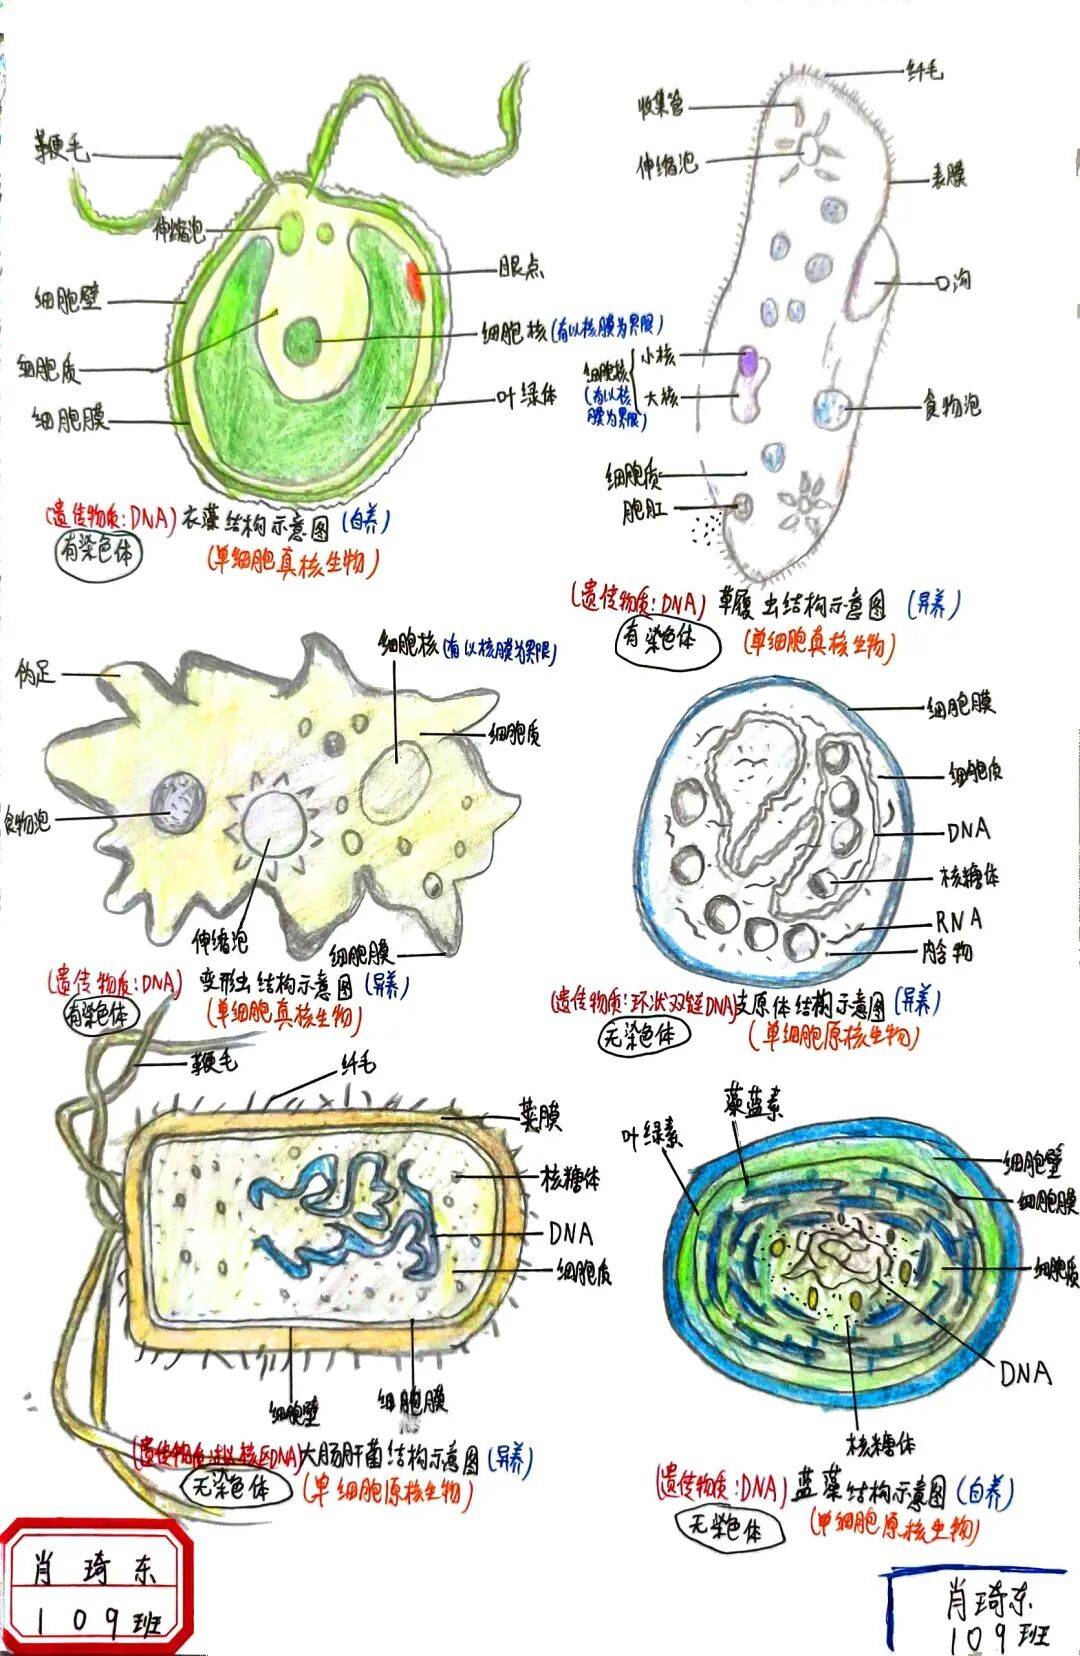 鞭毛
伸缩泡
细胞壁
细胞质
细胞膜
眼点
细胞核(有以核膜为界限)
叶绿体
(遗传物质:DNA) 衣藻结构示意图 (自养)
有染色体
(单细胞真核生物)
纤毛
收集管
伸缩泡
表膜
口沟
小核
细胞核
(有以核
膜为界限)
大核
食物泡
细胞质
胞肛
(遗传物质:DNA) 草履虫结构示意图 (异养)
有染色体
(单细胞真核生物)
细胞核(有以核膜为界限)
伪足
细胞质
食物泡
伸缩泡
细胞膜
(遗传物质:DNA) 变形虫结构示意图 (异养)
有染色体
(单细胞真核生物)
细胞膜
细胞质
DNA
核糖体
RNA
内含物
(遗传物质:环状双链DNA)支原体结构示意图 (异养)
无染色体
(单细胞原核生物)
鞭毛
纤毛
荚膜
核糖体
DNA
细胞质
细胞壁
细胞膜
(遗传物质:拟核区DNA)大肠肝菌结构示意图 (异养)
无染色体
(单细胞原核生物)
藻蓝素
叶绿素
细胞壁
细胞膜
细胞质
DNA
核糖体
(遗传物质:DNA) 蓝藻结构示意图 (自养)
无染色体
(单细胞原核生物)
肖琦东
109班
肖琦东
109班